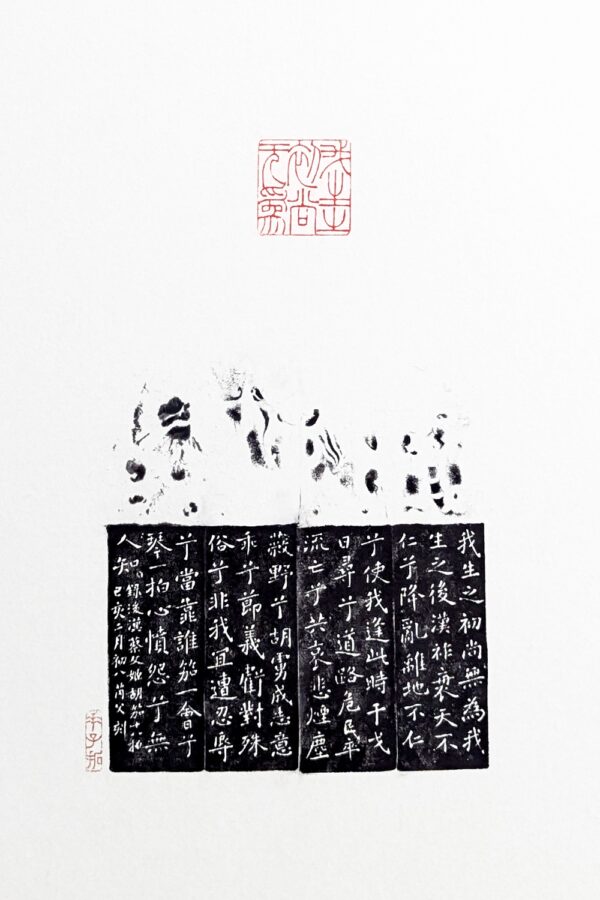 我生
初尚
无為
我生之初尚無為我
生之後漢祚衰天不
仁兮降亂離地不仁
兮使我逢此時干戈
日尋兮道路危民卒
流亡兮共哀悲煙塵
蔽野兮胡虜盛志意
乖兮節義虧對殊
俗兮非我宜遭忍辱
兮當靠誰笳一會兮
琴一拍心憤怨兮無
人知 錄後漢蔡文姬胡笳十八拍
己亥二月初八 父刻